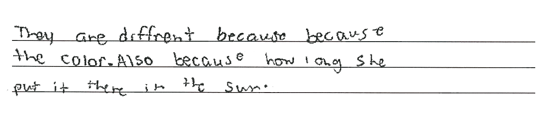 They are diffrent because because
the color. Also because how long she
put it there in the sun.